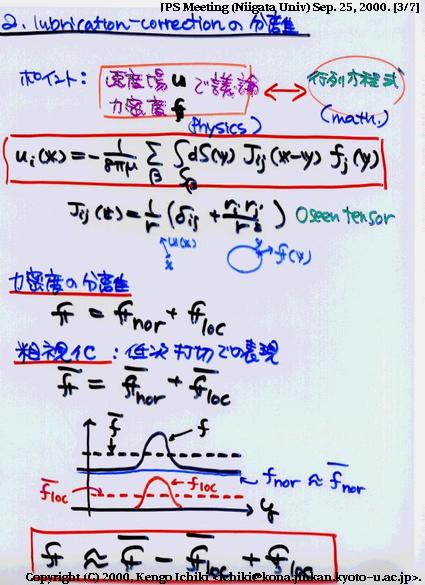 JPS Meeting (Niigata Univ) Sep. 25, 2000. [3/7]
2. lubrication-correctionの分離
ポイント: 速度場 u で議論 ↔ 行列方程式
力密度 f
(Physics) (math.)
u_i(x) = -1/8πμ Σ_β ∫_{S_β} dS(y) J_ij(x-y) f_j(y)
J_ij(r) = 1/r (δ_ij + r_i r_j / r²) Oseen tensor
u(x) x y f(y)
力密度の分離
f = f_nor + f_loc
粗視化: 低次打切での表現
f̄ = f̄_nor + f̄_loc
f̄ f
f_nor ≈ f̄_nor
f̄_loc f_loc
y
f ≈ f̄ - f̄_loc + f_loc
Copyright (C) 2000, Kengo Ichiki <ichiki@kona.jinkan.kyoto-u.ac.jp>.